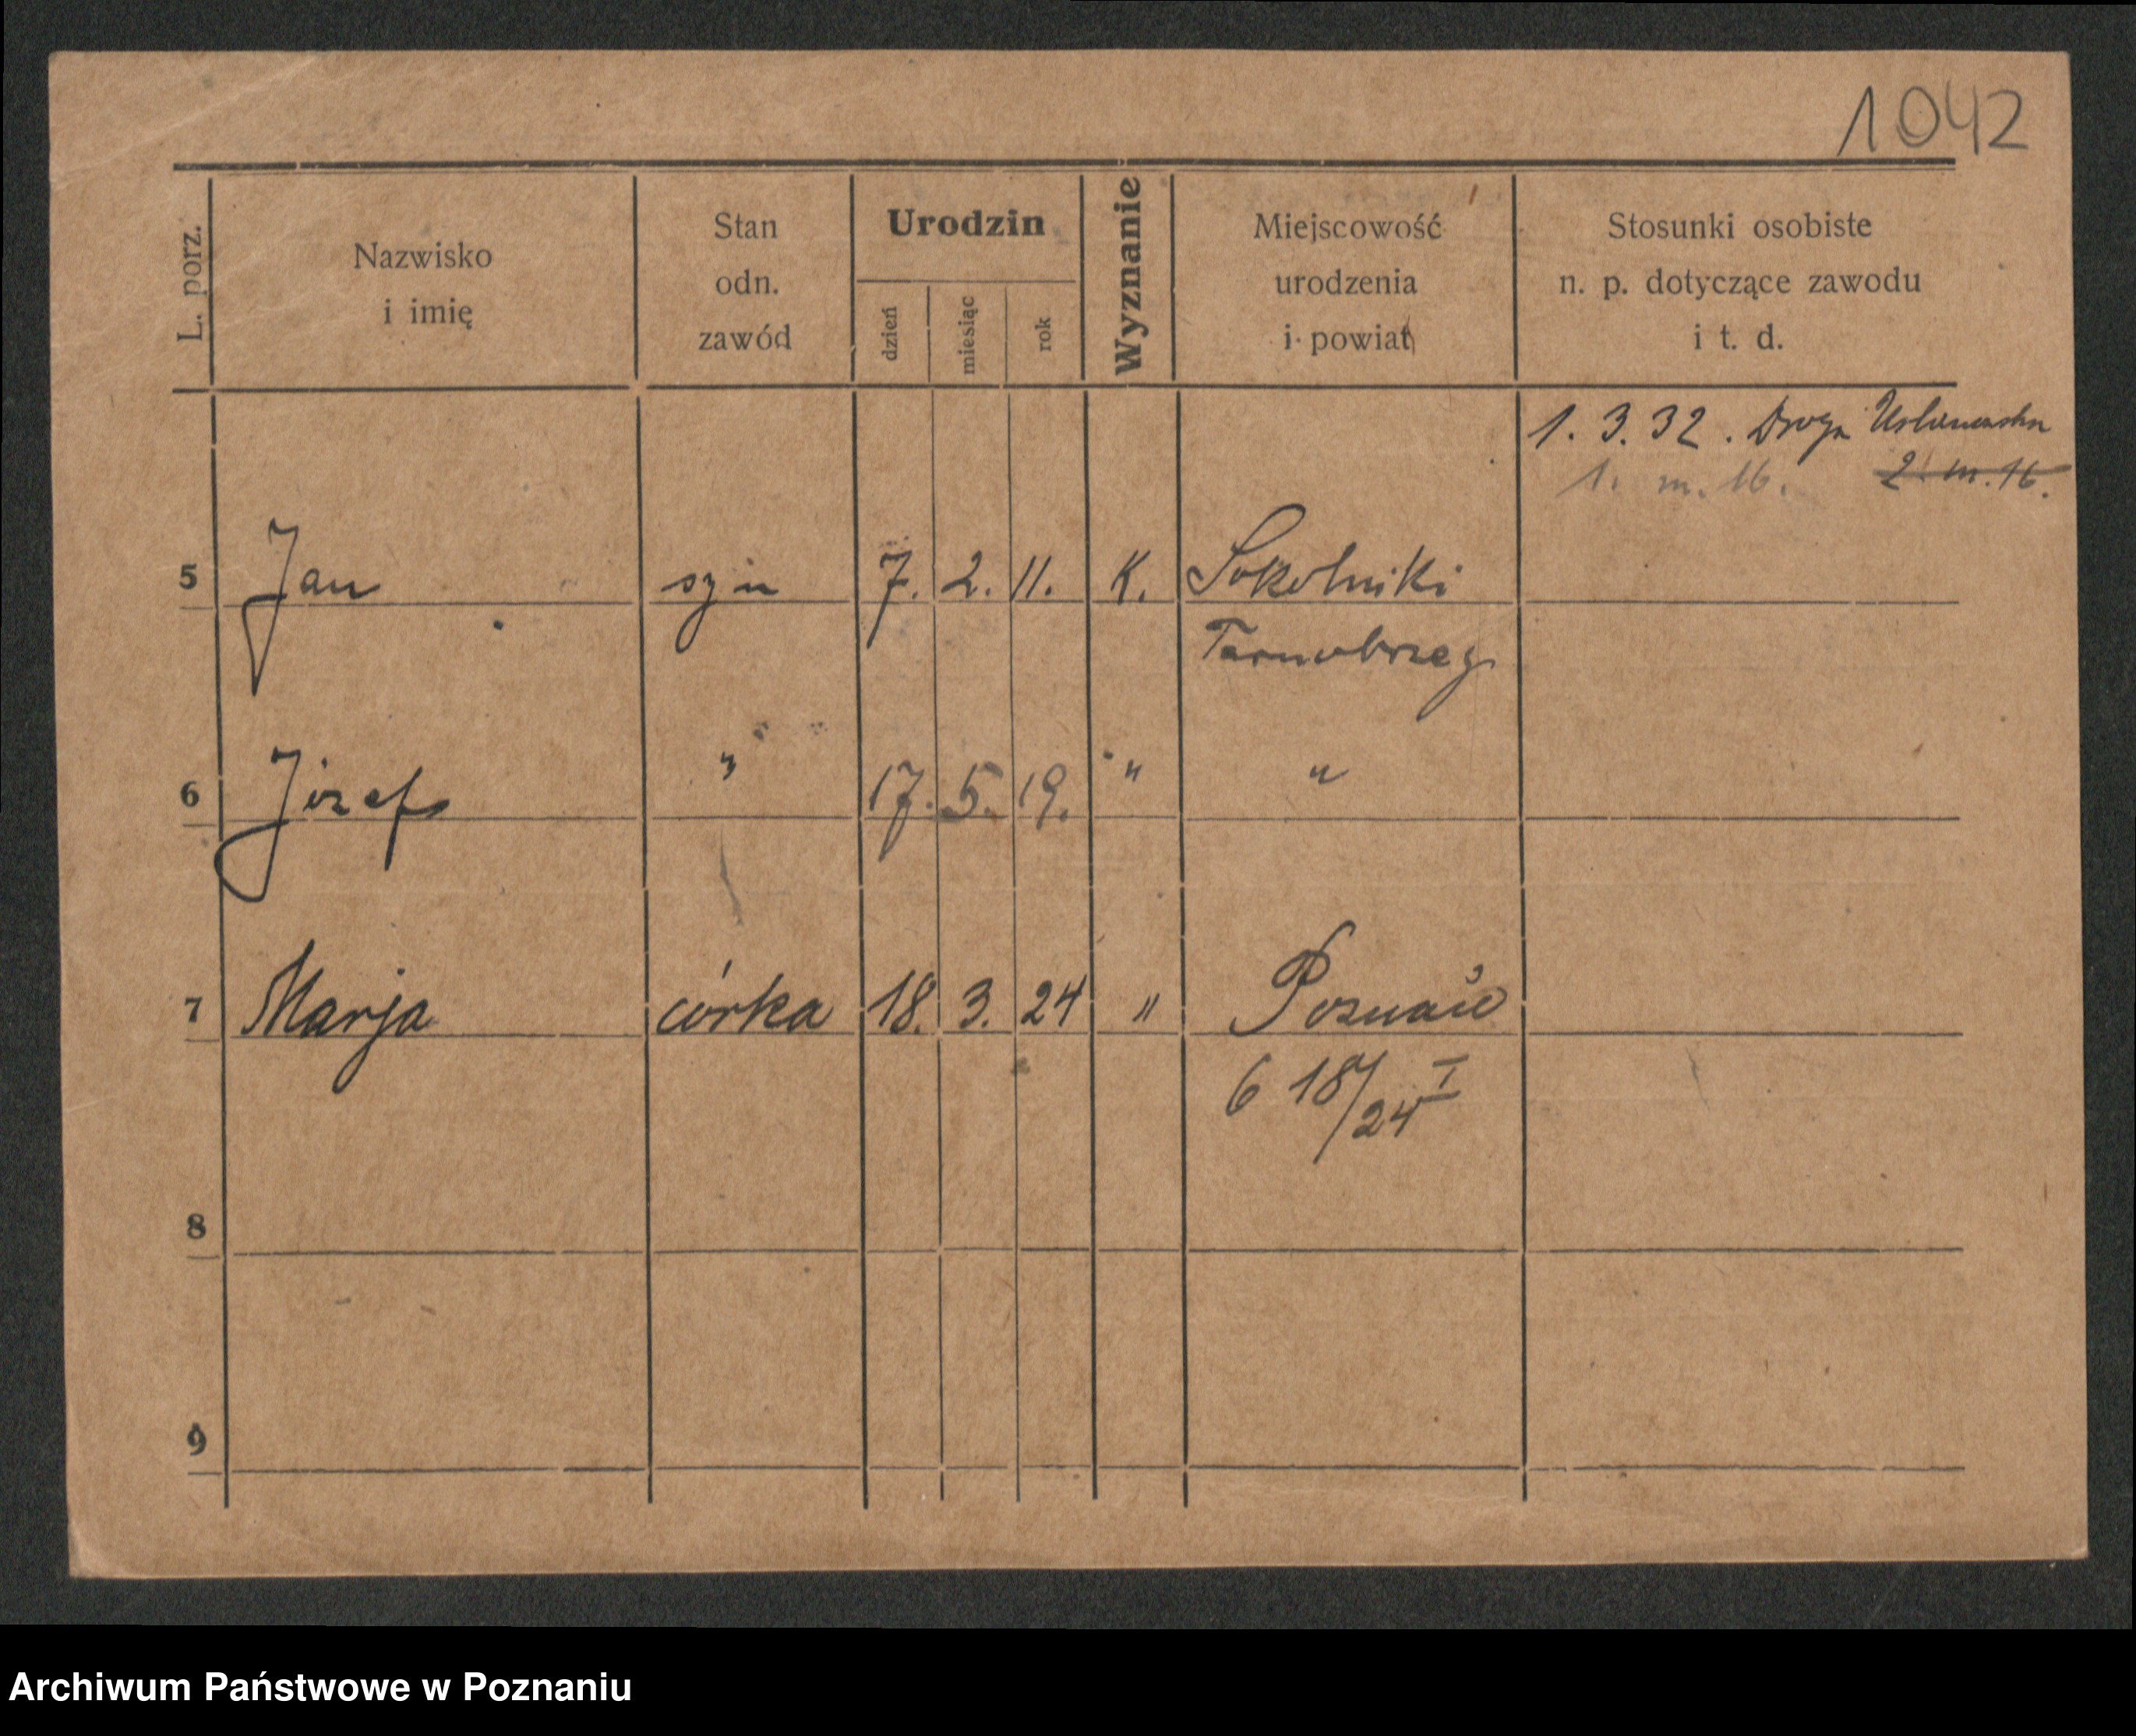 1042
L. porz.
Nazwisko
i imię
Stan
odn.
zawód
Urodzin
dzień
miesiąc
rok
Wyznanie
Miejscowość
urodzenia
i powiat
Stosunki osobiste
n. p. dotyczące zawodu
i t. d.
1. 3. 32. Droga
1. m. 16. 2. m. 16.
5 Jan syn 7. 2. 11. K. Sokolniki
Tarnobrzeg
6 Józef " 17. 5. 19. " "
7 Marja córka 18. 3. 24 " Poznań
6 18/24 I
8
9
Archiwum Państwowe w Poznaniu